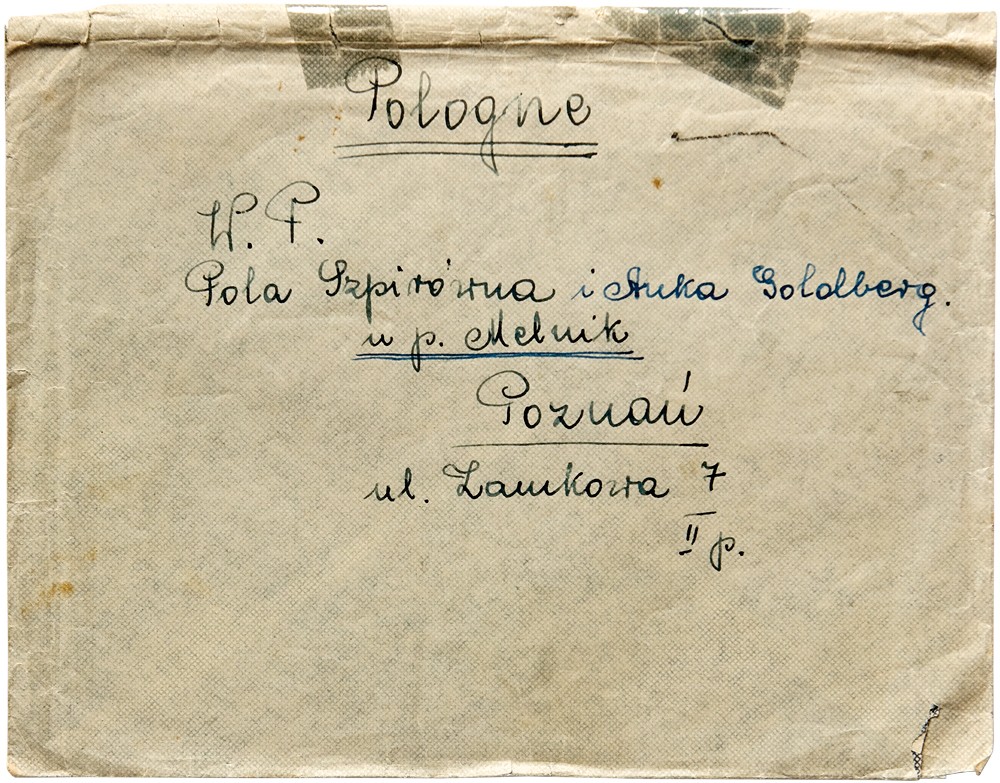 Pologne
W. P.
Pola Szpirówna i Anka Goldberg.
u p. Melnik
Poznań
ul. Zamkowa 7
II p.